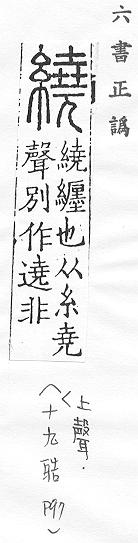 六書正譌
繞
繞纏也从糸堯
聲別作遶非
上聲.
(十九皓 P97)